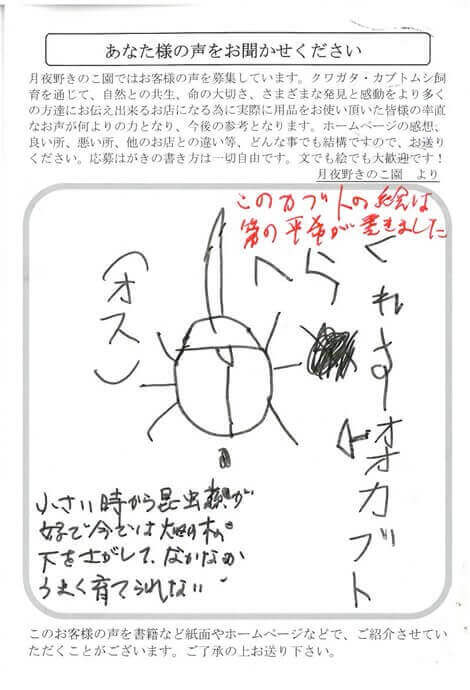 あなた様の声をお聞かせください
月夜野きのこ園ではお客様の声を募集しています。クワガタ・カブトムシ飼
育を通じて、自然との共生、命の大切さ、さまざまな発見と感動をより多く
の方達にお伝え出来るお店になる為に実際に用品をお使い頂いた皆様の率直
なお声が何よりの力となり、今後の参考となります。ホームページの感想、
良い所、悪い所、他のお店との違い等、どんな事でも結構ですので、お送り
ください。応募はがきの書き方は一切自由です。文でも絵でも大歓迎です！
月夜野きのこ園　より
このカブトの絵は
書きました
へらくれす
オオカブト
（オス）
小さい時から昆虫
好で今では
下をさがして、なかなか
うまく育てられない
このお客様の声を書籍など紙面やホームページなどで、ご紹介させてい
ただくことがございます。ご了承の上お送り下さい。